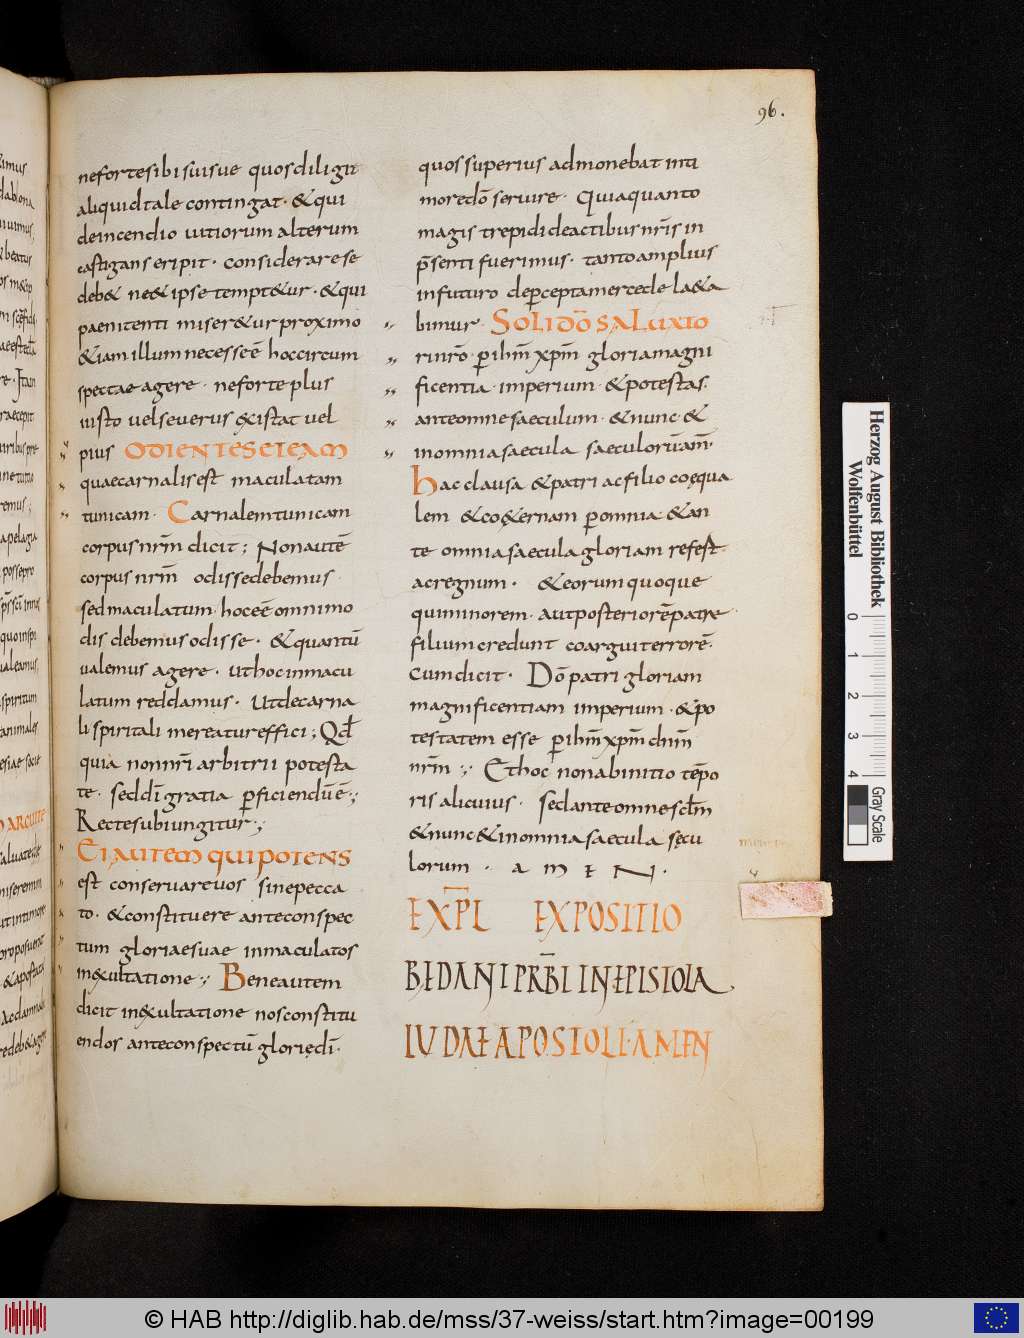 96.
neforte sibi suisve quos diligit
aliquid tale contingat · & qui
de incendio vitiorum alterum
castigans eripit · considerare se
deb& ne & ipse tempt&ur · & qui
paenitenti miser&ur proximo
& iam illum necesse ē hoc circum
specte agere · neforte plus
iusto vel severus existat vel
pius ODIENTES & EAM
quae carnalis est maculatam
tunicam · Carnalem tunicam
corpus nr̄m dicit ; Non autē
corpus nr̄m odisse debemus
sed maculatum hoc eē omnimo
dis debemus odisse · & quantū
valemus agere · ut hoc inmacu
latum reddamus · ut de carna
li spiritali mereatur effici ; Qd
quia non nr̄i arbitrii potesta
te · sed dī gratia perficiendū ē ;
Recte subiungitur ;
EI AUTEM QUI POTENS
est conservare vos sine pecca
to · & constituere ante conspec
tum gloriae suae inmaculatos
in exultatione ; Bene autem
dicit in exultatione nos constitu
endos ante conspectū glorię dī ·
quos superius admonebat in ti
more dō servire · Quia quanto
magis trepidi de actibus nr̄is in
p̄senti fuerimus · tanto amplius
in futuro de percepta mercede la&a
bimur · SOLI DŌ SALUATO
RI nrō · per ih̄m xp̄m gloria magni
ficentia · imperium · & potestas
ante omne saeculum · & nunc · &
in omnia saecula saeculorū am̄
Hac clausa & patri ac filio coęqua
lem & co&ernam per omnia · & an
te omnia saecula gloriam refest
ac regnum · & eorum quoque
qui minorem · aut posteriorē patre
filium credunt coarguit errorē ·
Cum dicit · Dō patri gloriam
magnificentiam imperium · & po
testatem esse per ih̄m xp̄m dn̄m
nr̄m ; Et hoc non ab initio tēpo
ris alicuius · sed ante omne sclm
& nunc & in omnia saecula sęcu
lorum · A M E N ·
EXPL EXPOSITIO
BEDANI PRBI IN EPISTOLA
IUDAE APOSTOLI · AMEN
Herzog August Bibliothek
Wolfenbüttel
0 1 2 3 4
Gray Scale
© HAB http://diglib.hab.de/mss/37-weiss/start.htm?image=00199